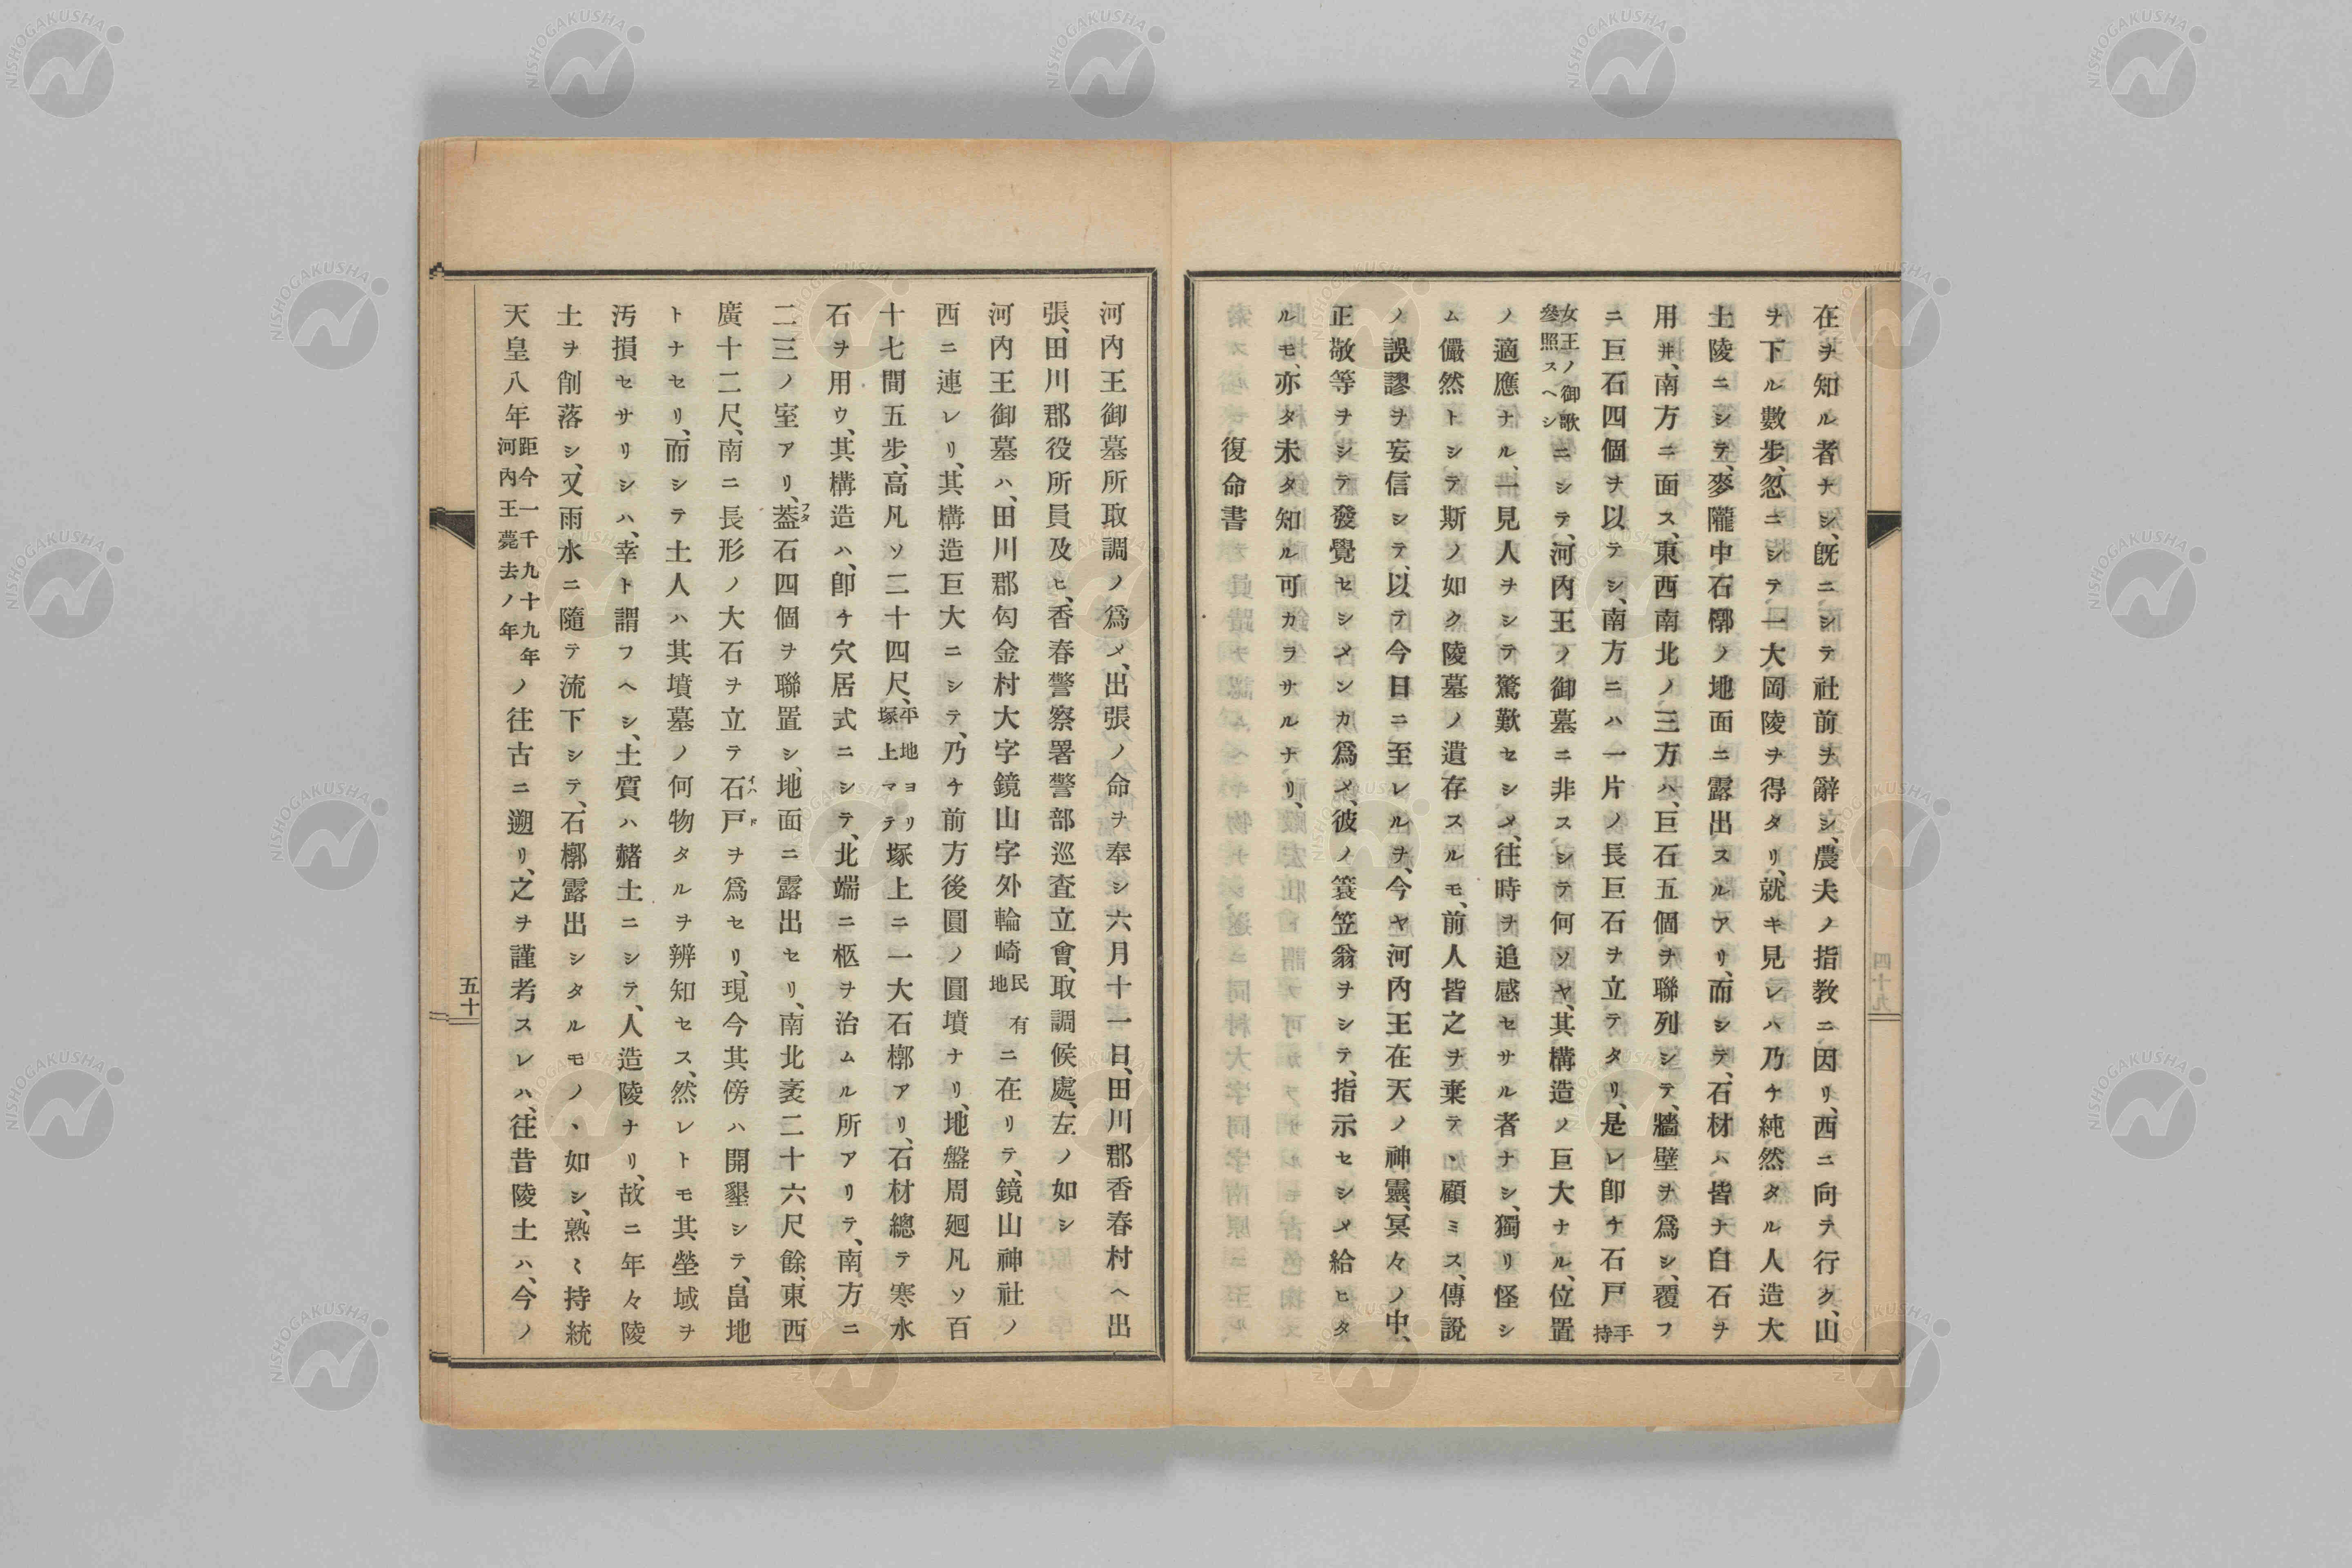 在ヲ知ル者ナシ、既ニシテ社前ヲ辭シ、農夫ノ指教ニ因リ、西ニ向テ行ク、山
ヲ下ル數步、忽ニシテ、一大岡陵ヲ得タリ、就キ見レハ乃チ純然タル人造大
土陵ニシテ、麥隴中石槨ノ地面ニ露出スルアリ、而シテ、石材ハ皆ナ白石ヲ
用井、南方ニ面ス、東西南北ノ三方ハ、巨石五個ヲ聯列シテ、牆壁ヲ爲シ、覆フ
ニ巨石四個ヲ以テシ、南方ニハ一片ノ長巨石ヲ立テタリ、是レ卽チ石戸手持
女王ノ御歌參照スヘシニシテ、河內王ノ御墓ニ非スシテ何ソヤ、其構造ノ巨大ナル、位置
ノ適應ナル、一見人ヲシテ驚歎セシメ、往時ヲ追感セサル者ナシ、獨リ怪シ
ム儼然トシテ斯ノ如ク陵墓ノ遺存スルモ、前人皆之ヲ棄テヽ顧ミス、傳說
ノ誤謬ヲ妄信シテ、以テ今日ニ至レルヲ、今ヤ河內王在天ノ神靈、冥々ノ中、
正敬等ヲシテ發覺セシメンカ爲メ、彼ノ簑笠翁ヲシテ、指示セシメ給ヒタ
ルモ、亦タ未タ知ル可カラサルナリ、
復命書
河內王御墓所取調ノ爲メ、出張ノ命ヲ奉シ六月十一日、田川郡香春村ヘ出
張、田川郡役所員及ヒ、香春警察署警部巡査立會、取調候處、左ノ如シ
河內王御墓ハ、田川郡勾金村大字鏡山字外輪崎民有地ニ在リテ、鏡山神社ノ
西ニ連レリ、其構造巨大ニシテ、乃チ前方後圓ノ圓墳ナリ、地盤周廻凡ソ百
十七間五步、高凡ソ二十四尺、平地ヨリ塚上マテ塚上ニ一大石槨アリ、石材總テ寒水
石ヲ用ウ、其構造ハ、卽チ穴居式ニシテ、北端ニ柩ヲ治ムル所アリテ、南方ニ
二三ノ室アリ、蓋フタ石四個ヲ聯置シ、地面ニ露出セリ、南北袤二十六尺餘、東西
廣十二尺、南ニ長形ノ大石ヲ立テ石戸イハドヲ爲セリ、現今其傍ハ開墾シテ、畠地
トナセリ、而シテ土人ハ其墳墓ノ何物タルヲ辨知セス、然レトモ其塋域ヲ
汚損セサリシハ、幸ト謂フヘシ、土質ハ赭土ニシテ、人造陵ナリ、故ニ年々陵
土ヲ削落シ、又雨水ニ隨テ流下シテ、石槨露出シタルモノヽ如シ、熟〻持統
天皇八年距今一千九十九年河內王薨去ノ年ノ往古ニ遡リ、之ヲ謹考スレハ、往昔陵土ハ、今ノ
五十